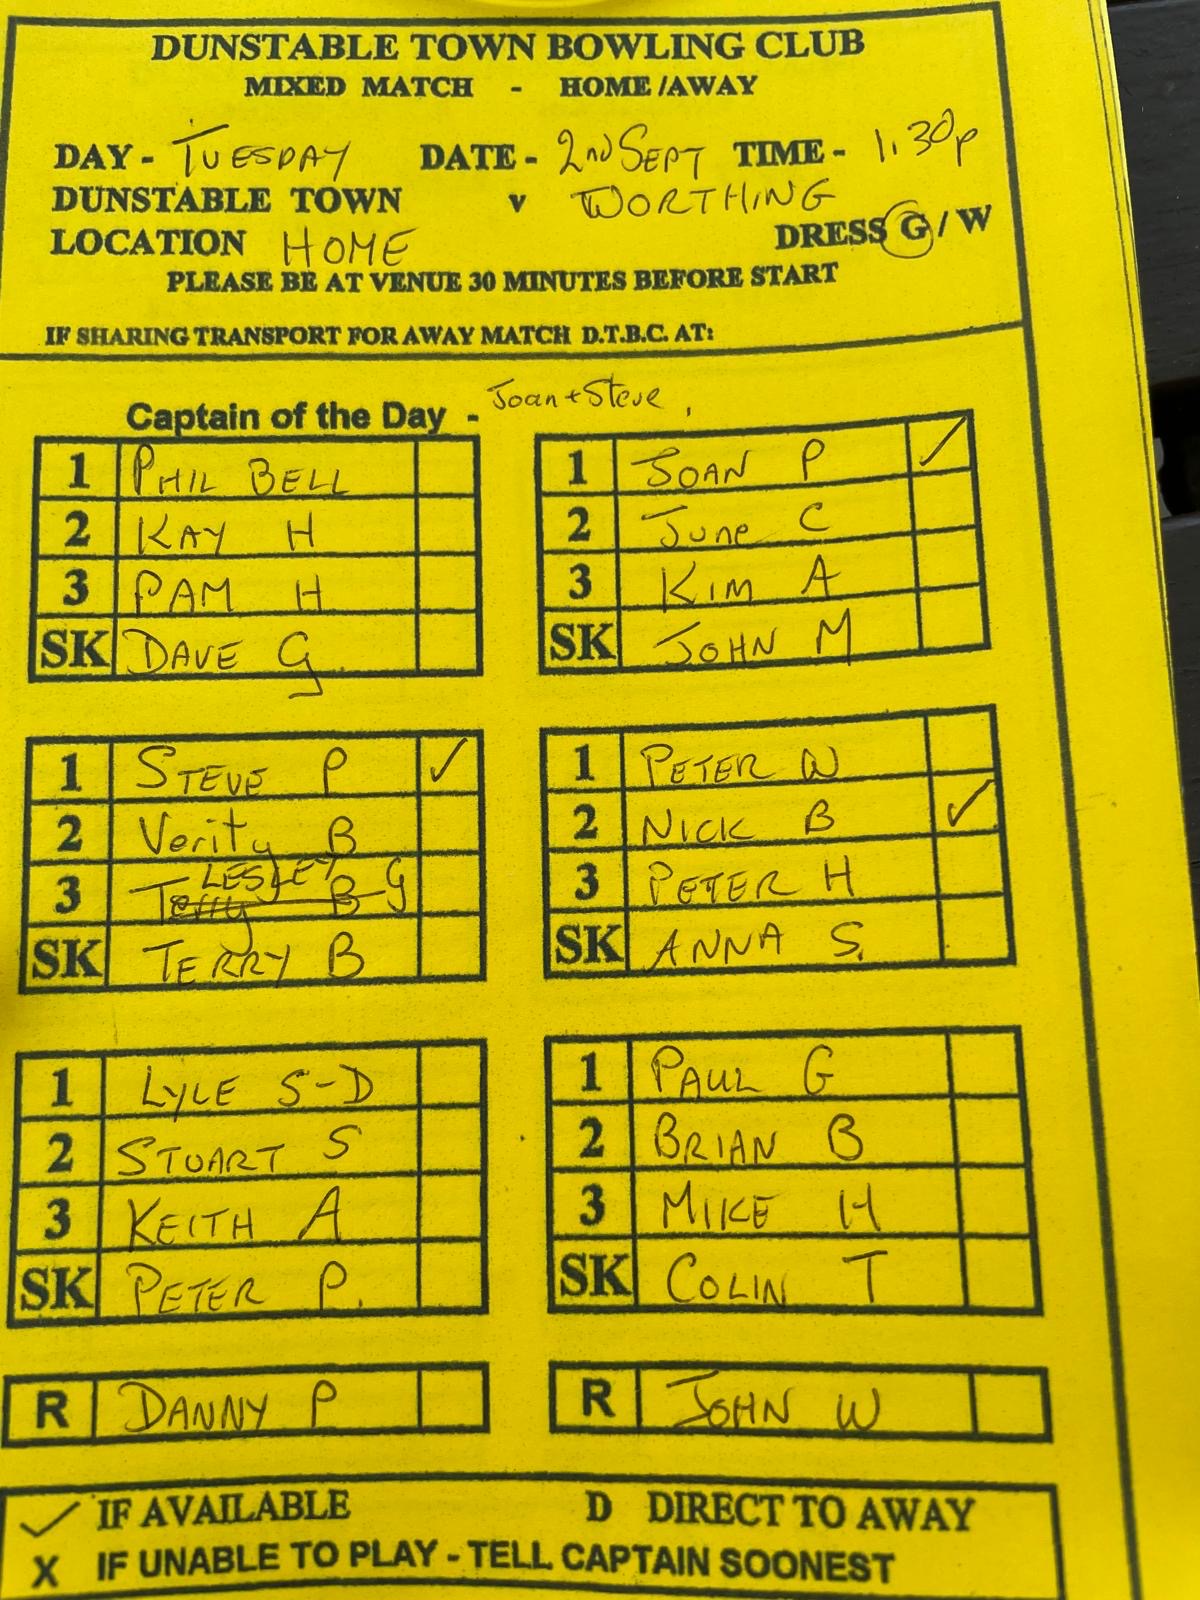 DUNSTABLE TOWN BOWLING CLUB
MIXED MATCH - HOME /AWAY
DAY - TUESDAY DATE - 2ND SEPT TIME - 1.30p
DUNSTABLE TOWN v WORTHING
LOCATION HOME DRESS G / W
PLEASE BE AT VENUE 30 MINUTES BEFORE START
IF SHARING TRANSPORT FOR AWAY MATCH D.T.B.C. AT:
Captain of the Day - Joan + Steve
1 PHIL BELL
2 KAY H
3 PAM H
SK DAVE G
1 JOAN P ✓
2 June C
3 KIM A
SK JOHN M
1 STEVE P ✓
2 Verity B
3 LESLEY G
Terry B
SK TERRY B
1 PETER W
2 NICK B ✓
3 PETER H
SK ANNA S.
1 LYLE S-D
2 STUART S
3 KEITH A
SK PETER P.
1 PAUL G
2 BRIAN B
3 MIKE H
SK COLIN T
R DANNY P
R JOHN W
✓ IF AVAILABLE D DIRECT TO AWAY
X IF UNABLE TO PLAY - TELL CAPTAIN SOONEST